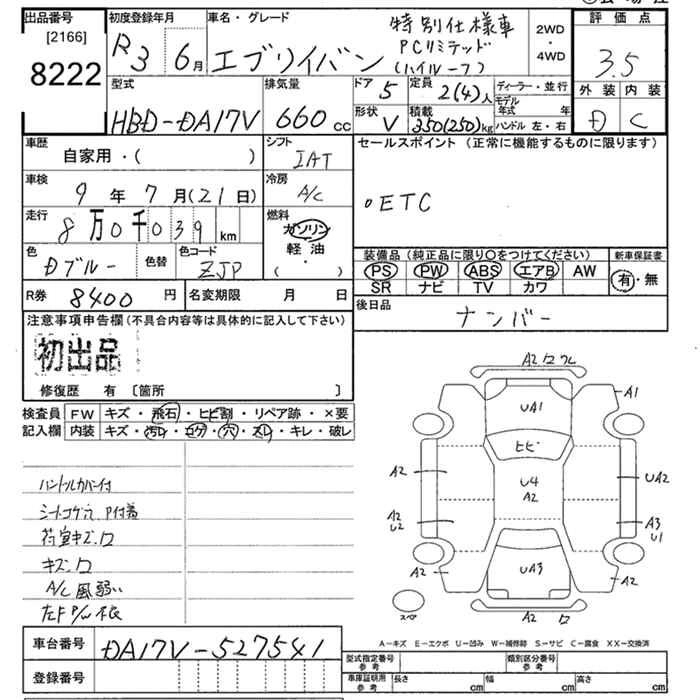 出品番号
[2166]
8222
初度登録年月
R3 6月
車名・グレード
エブリイバン
特別仕様車
PCリミテッド
(ハイルーフ)
2WD
・
4WD
評価点
3.5
外装 内装
D C
型式
HBD-DA17V
排気量
660 cc
ドア
5
定員
2(4)人
ディーラー・並行
モデル年式 年
ハンドル 左・右
形状
V
積載
350(250)kg
車歴
自家用・( )
シフト
IAT
セールスポイント (正常に機能するものに限ります)
車検
9年 7月(21日)
冷房
A/C
。ETC
走行
8万0千039 km
燃料
ガソリン
軽油
・
( )
色
Dブルー
色替
色コード
ZJP
装備品 (純正品に限り○をつけてください)
新車保証書
PS PW ABS エアB AW
SR ナビ TV カワ
有・無
R券 8400円
名変期限 月 日
後日品
ナンバー
注意事項申告欄 (不具合内容等は具体的に記入して下さい)
初出品
修復歴 有 〔箇所 〕
検査員
記入欄
FW キズ・飛石・ヒビ割・リペア跡・×要
内装 キズ・汚レ・コゲ・穴・スレ・キレ・破レ
ハンドルカバー付
シートコゲ穴、P付着
荷室キズ、ワ
キズ、ワ
A/C 風弱い
左F P/W 不良
A2 ワ ワレ
A1
UA1
ヒビ
A2
U4
A2
UA2
A2
U2
A3
U1
A2
UA3
A2
スペ
A2 ワ
A-キズ E-エクボ U-凹み W-補修跡 S-サビ C-腐食 XX-交換済
車台番号
DA17V-527541
登録番号
型式指定番号
参考
類別区分番号
参考
車庫証明用
参考
長さ cm
幅 cm
高さ cm